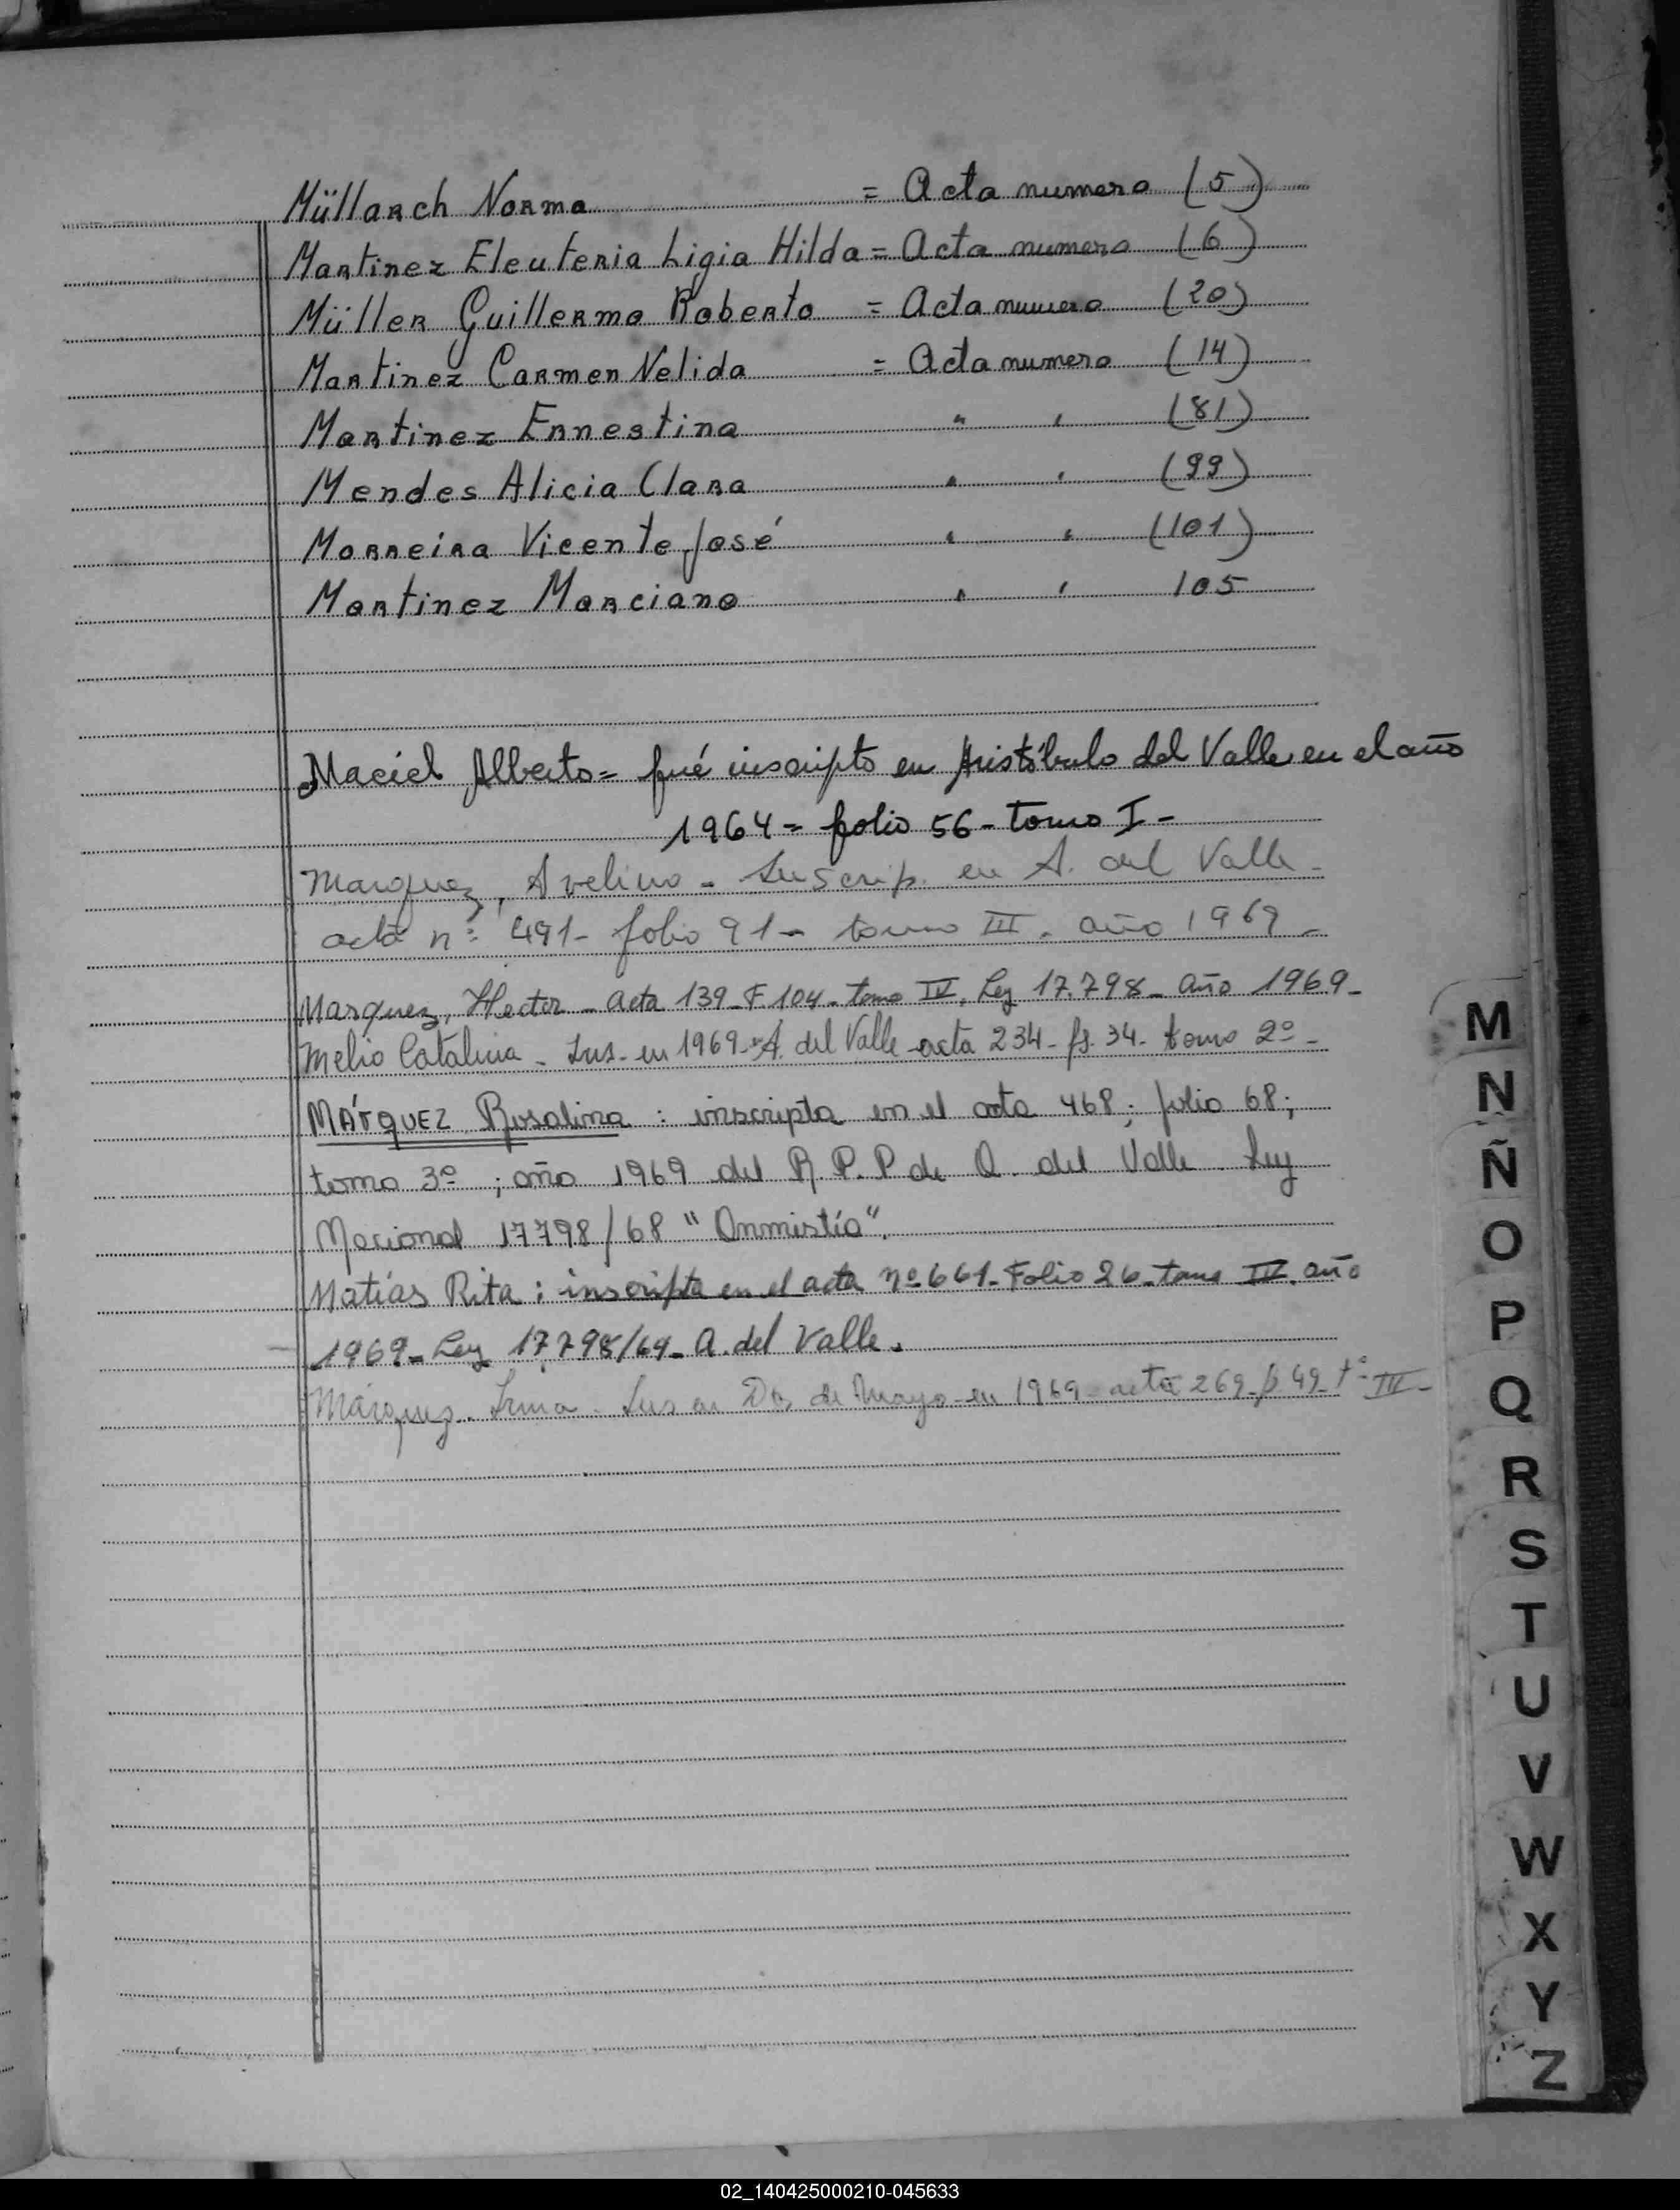 Müllarch Norma = Acta numero (5)
Martinez Eleuteria Ligia Hilda = Acta numero (6)
Müller Guillermo Roberto = Acta numero (20)
Martinez Carmen Nelida = Acta numero (14)
Martinez Ernestina " " (81)
Mendes Alicia Clara " " (99)
Morreira Vicente José " " (101)
Martinez Marciano " " 105
Maciel Alberto = fué inscripto en Aristóbulo del Valle en el año
1964 = folio 56 - tomo I -
Marquez, Avelino - Inscrip. en A. del Valle -
acta nº 491 - folio 91 - tomo III. año 1969 -
Marquez, Hector - acta 139 - F 104 - tomo IV, Ley 17.798 - año 1969 -
Melio Catalina - Ins. en 1969 - A. del Valle - acta 234 - fs. 34 - tomo 2º -
MÁrQUEZ Rosalina : inscripta en el acta 468; folio 68;
tomo 3º ; año 1969 del R.P.P de A. del Valle. Ley
Nacional 17798/68 "Anmistía".
Matías Rita : inscripta en el acta nº 661 - Folio 26 - tomo IV. año
1969 - Ley 17.798/69 - A. del Valle.
Márquez. Irma - Ins en Dos de Mayo - en 1969 - acta 269 - f 49 - tº III -
M
N
Ñ
O
P
Q
R
S
T
U
V
W
X
Y
Z
02_140425000210-045633